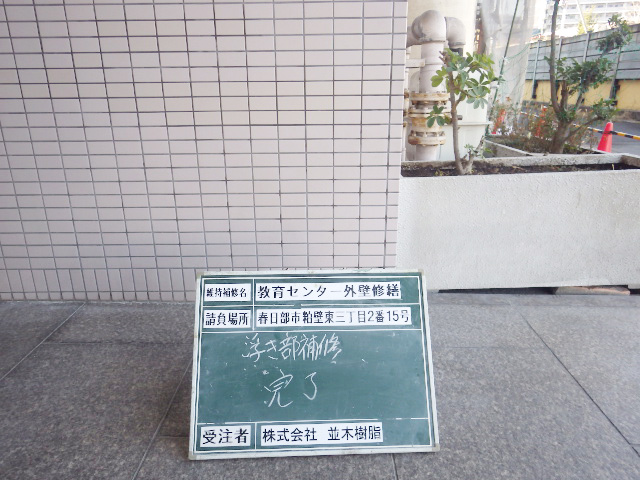 維持補修名 教育センター外壁修繕
請負場所 春日部市粕壁東三丁目2番15号
浮き部補修
完了
受注者 株式会社 並木樹脂